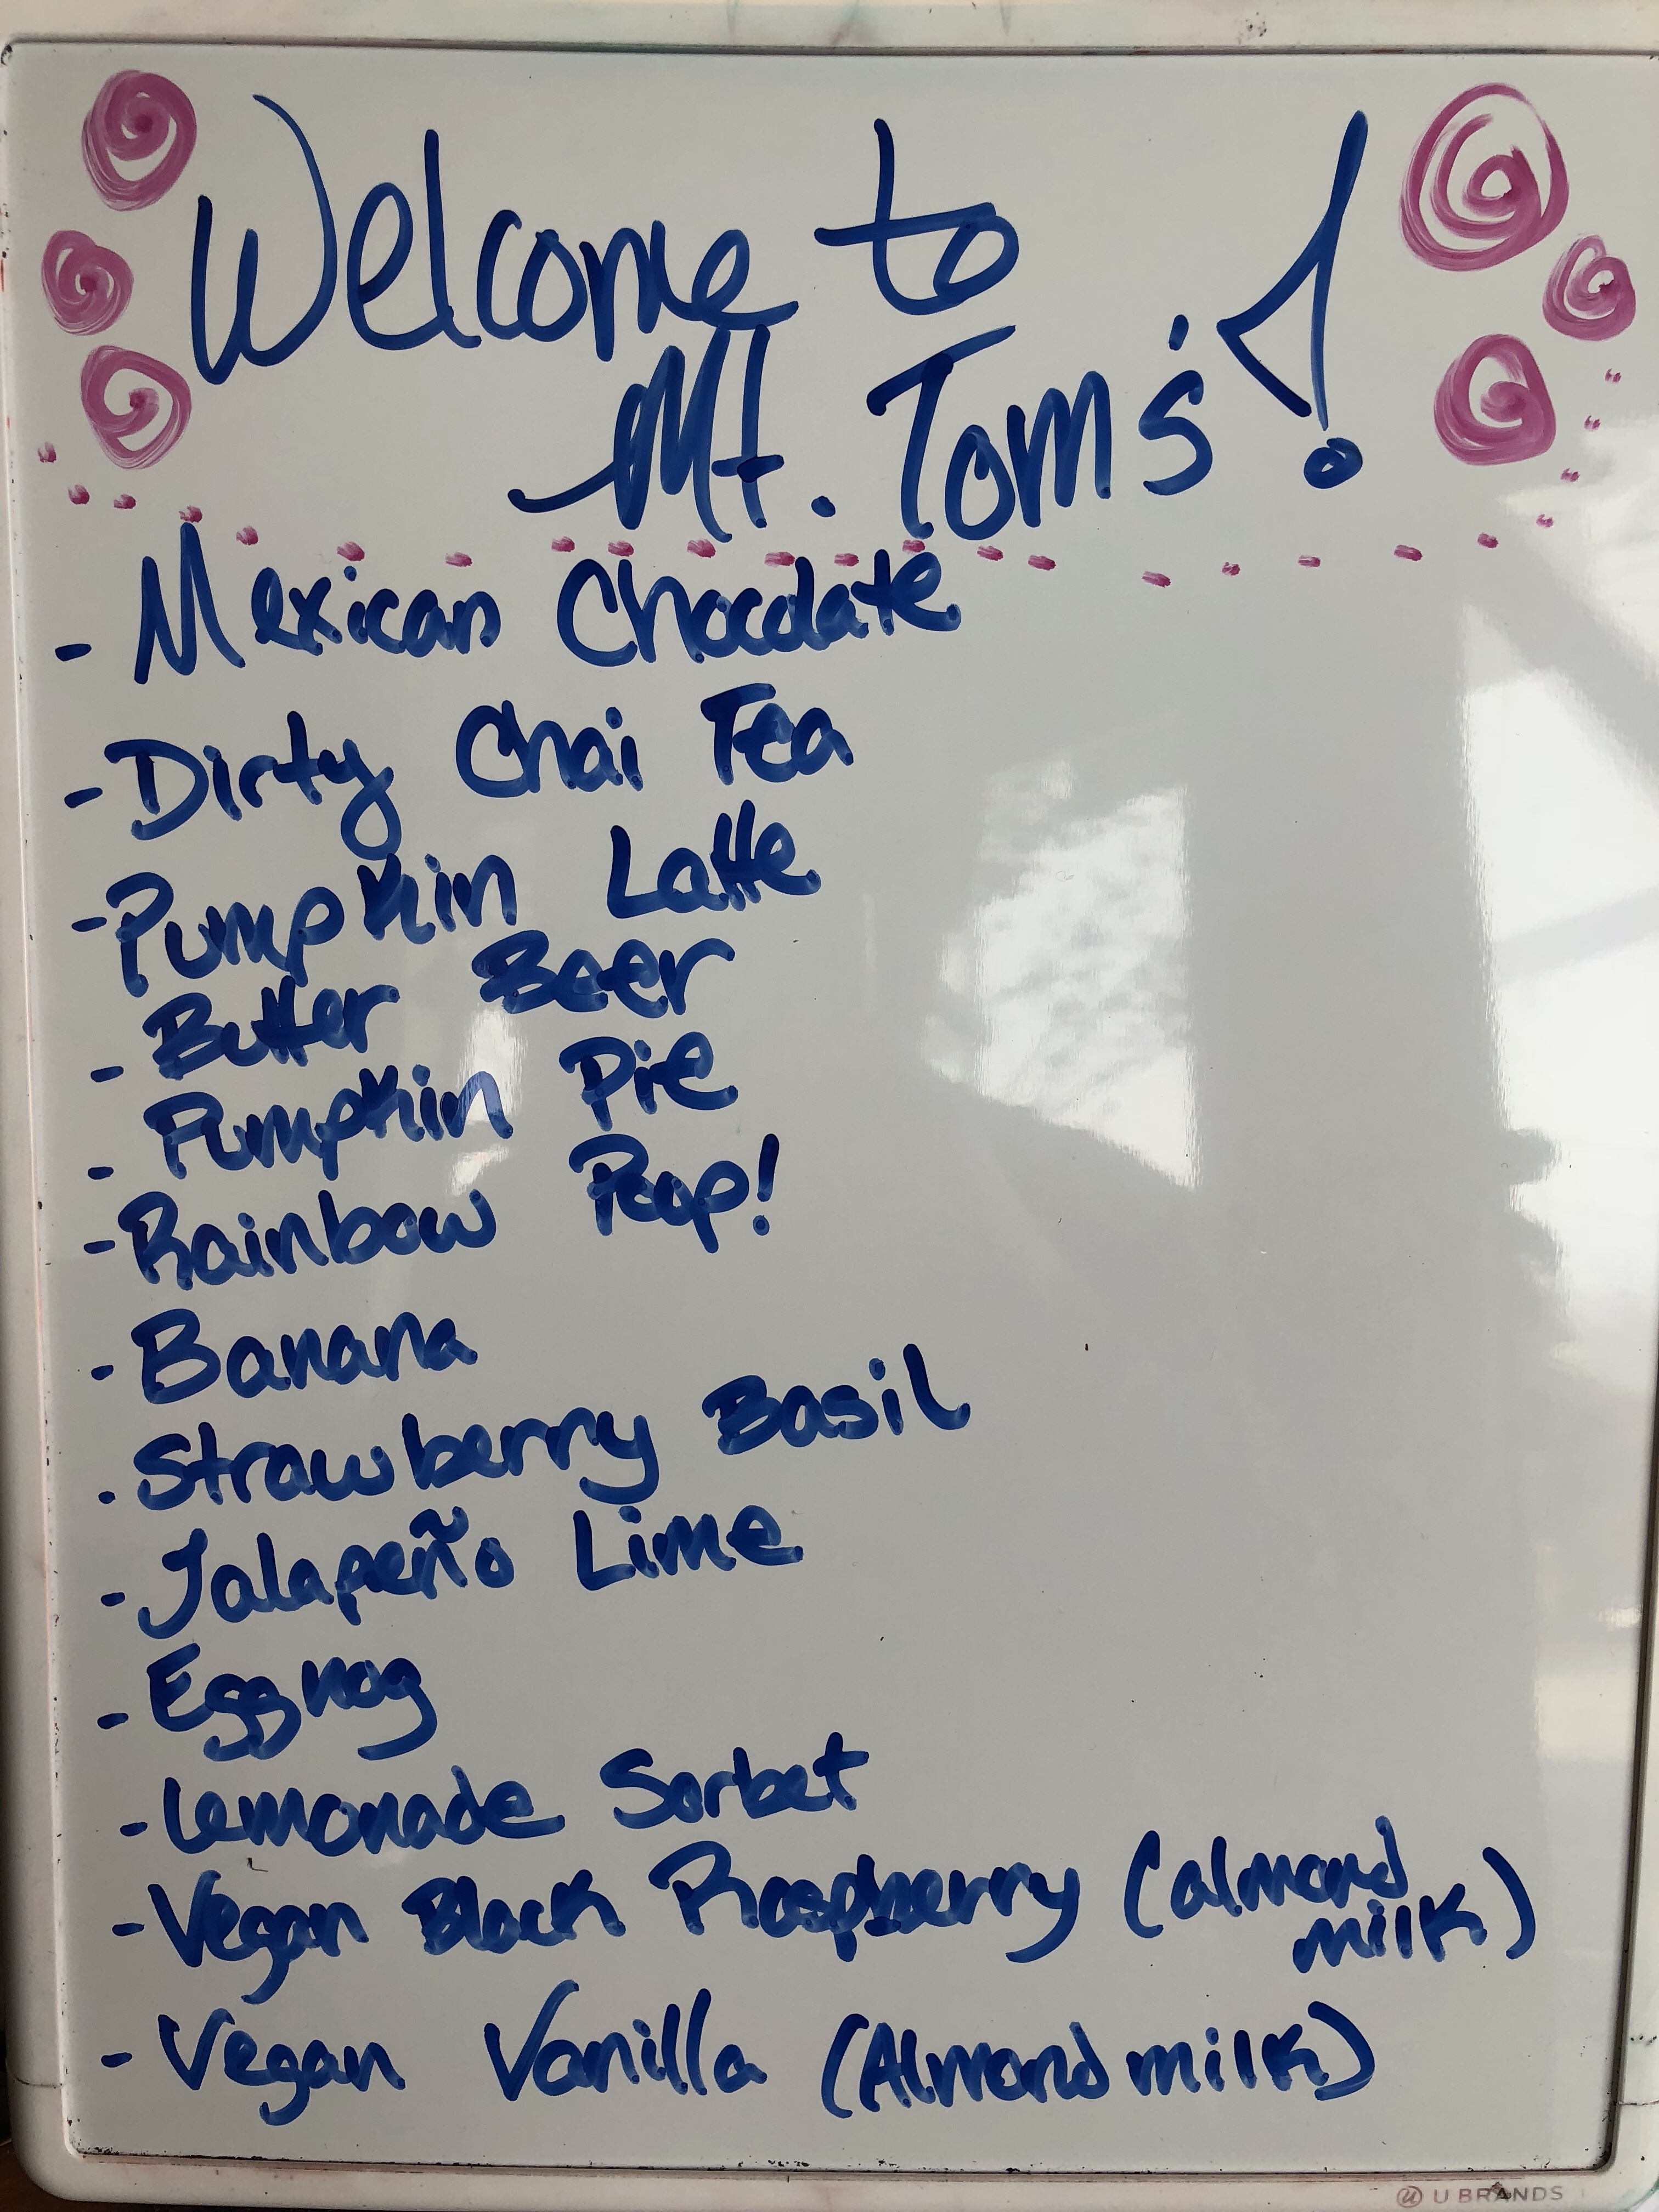 Welcome to
Mt. Tom's!
- Mexican Chocolate
- Dirty Chai Tea
- Pumpkin Latte
- Butter Beer
- Pumpkin Pie
- Rainbow Poop!
- Banana
- Strawberry Basil
- Jalapeño Lime
- Eggnog
- Lemonade Sorbet
- Vegan Black Raspberry (almond
milk)
- Vegan Vanilla (Almond milk)
U BRANDS